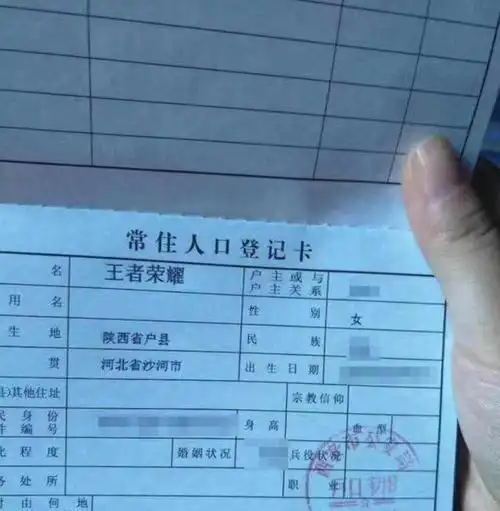 常住人口登记卡
名 王者荣耀 户主或与户主关系
用名 性别 女
生地 陕西省户县 民族
贯 河北省沙河市 出生日期
县)其他住址 宗教信仰
民身份 件编号 身高 血型
化程度 婚姻状况 兵役状况
务处所 职业
由何地